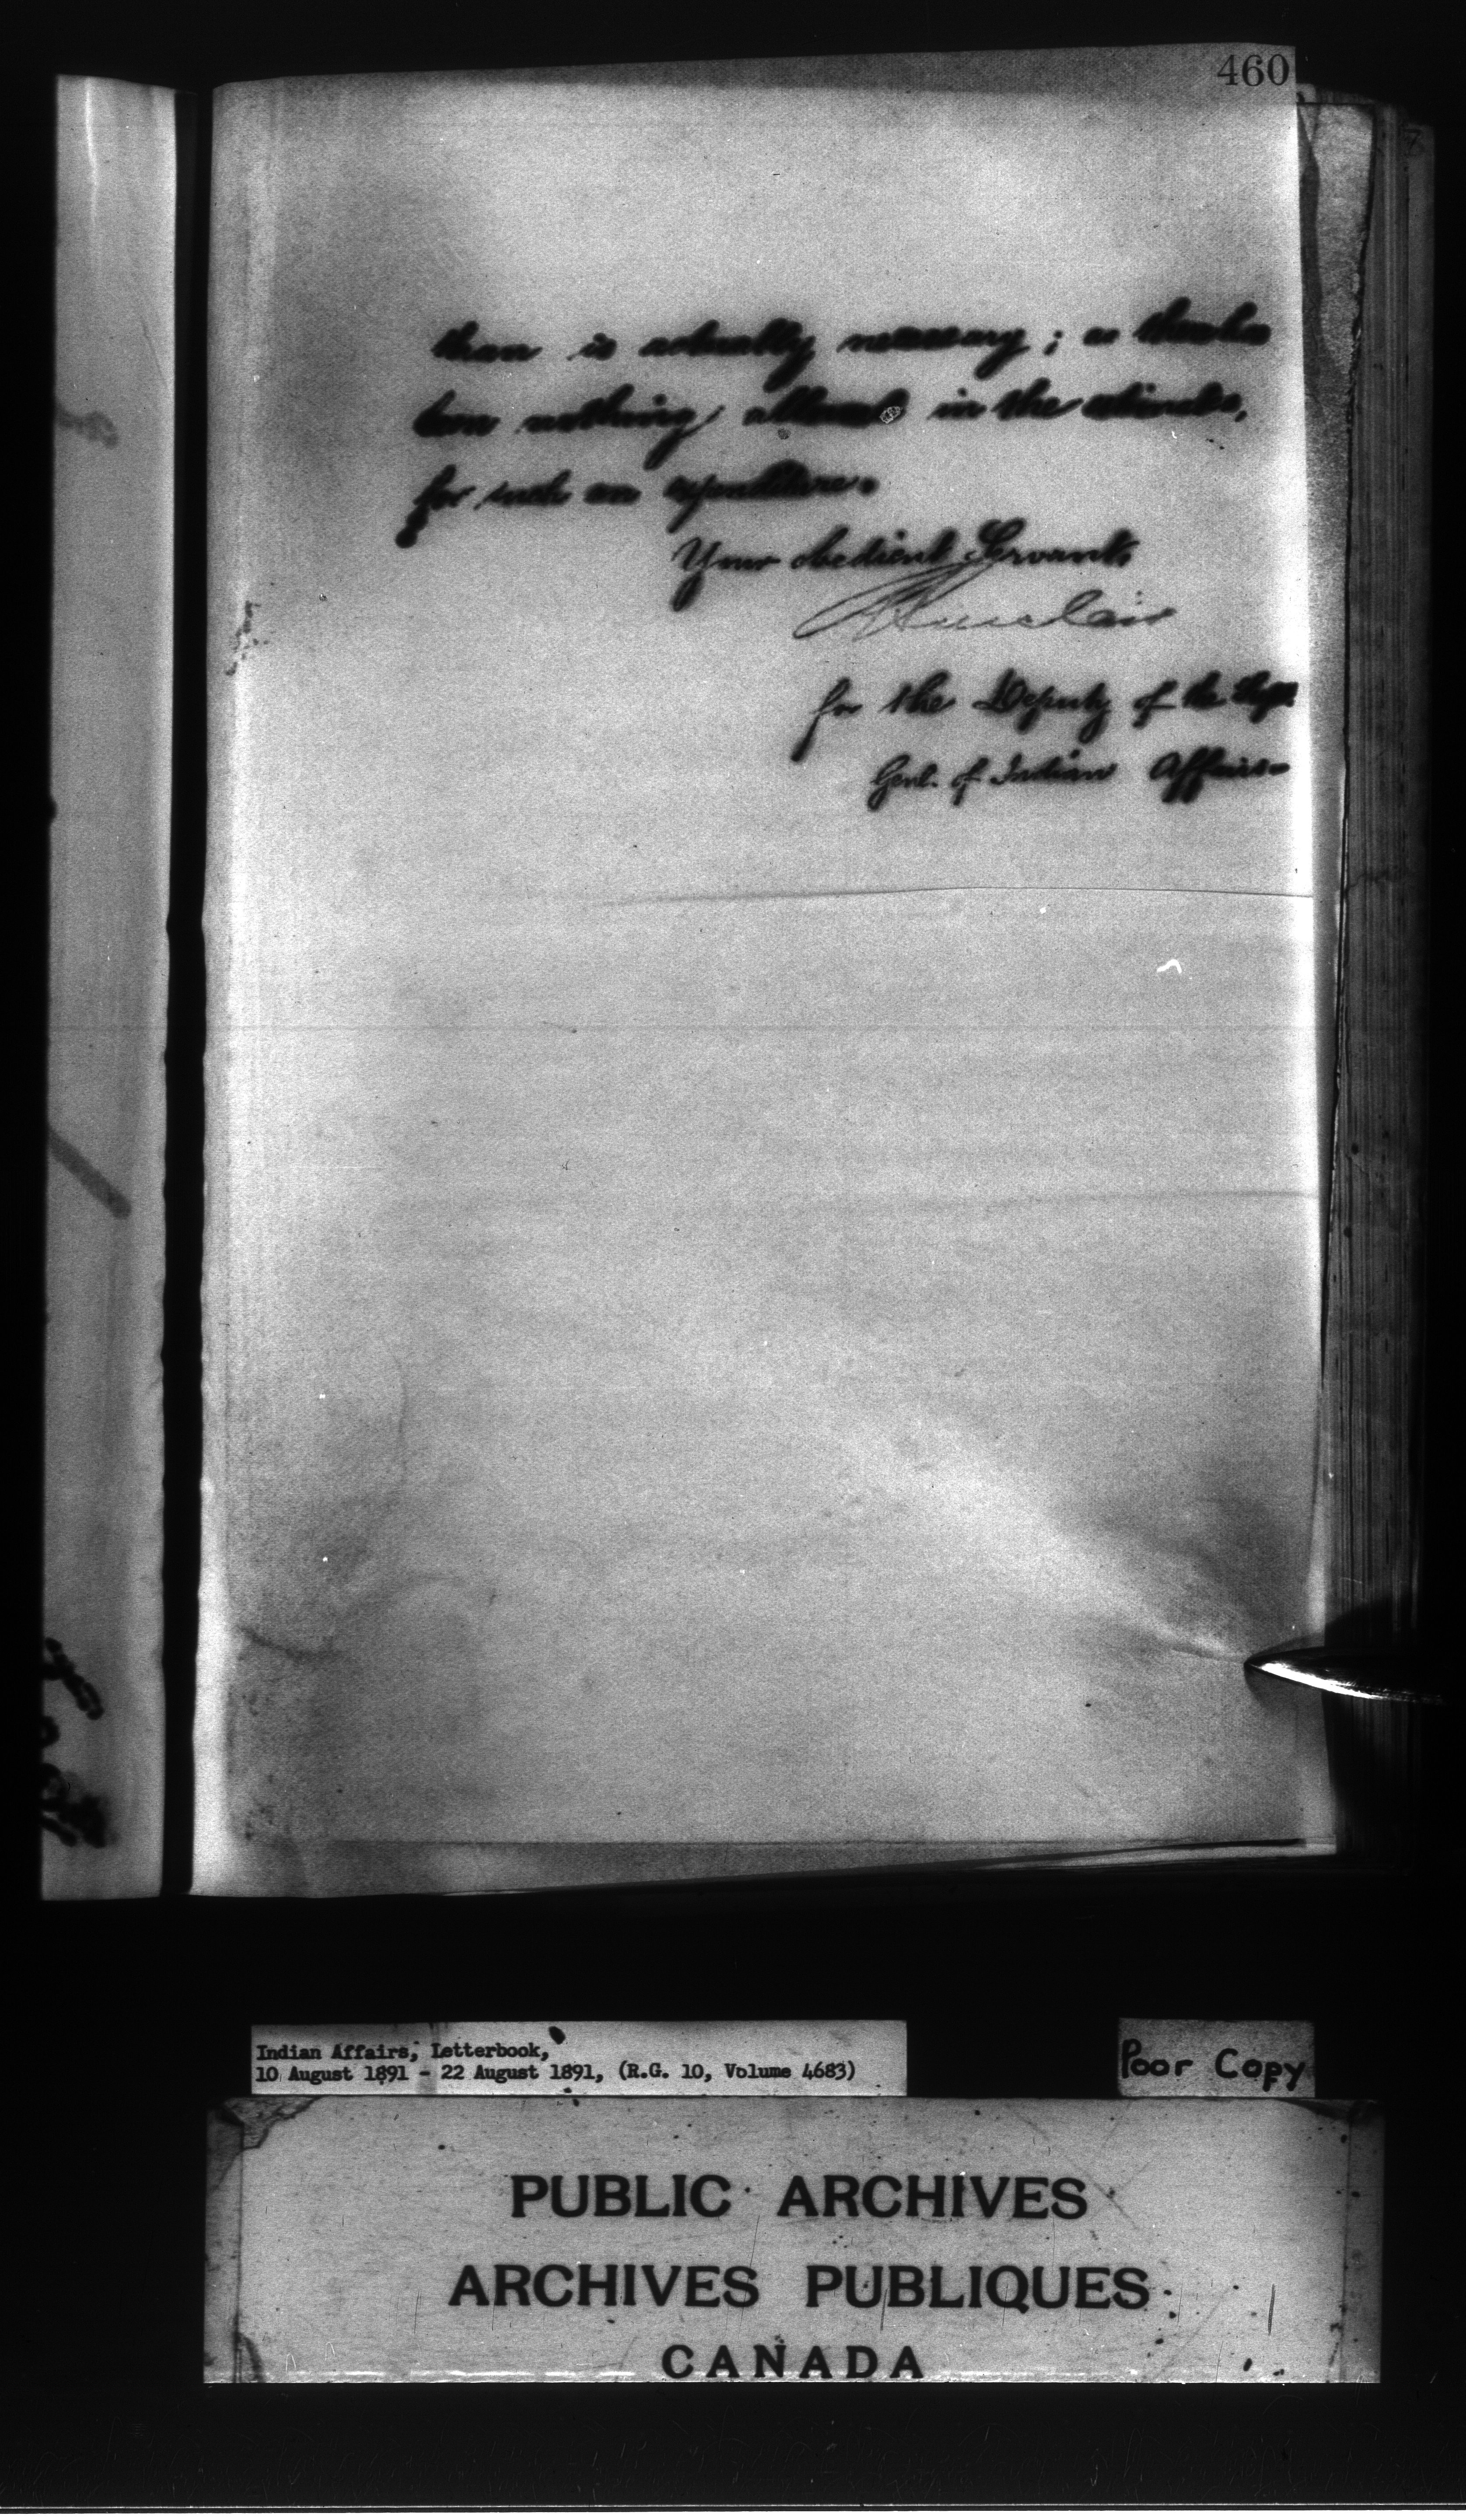 460
than is actually necessary; as there has
been nothing allowed in the estimates,
for such an expenditure.
Your obedient Servant,
Sinclair
for the Deputy of the Supt.
Genl. of Indian Affairs.
Indian Affairs, Letterbook,
10 August 1891 - 22 August 1891, (R.G. 10, Volume 4683)
Poor Copy
PUBLIC ARCHIVES
ARCHIVES PUBLIQUES
CANADA